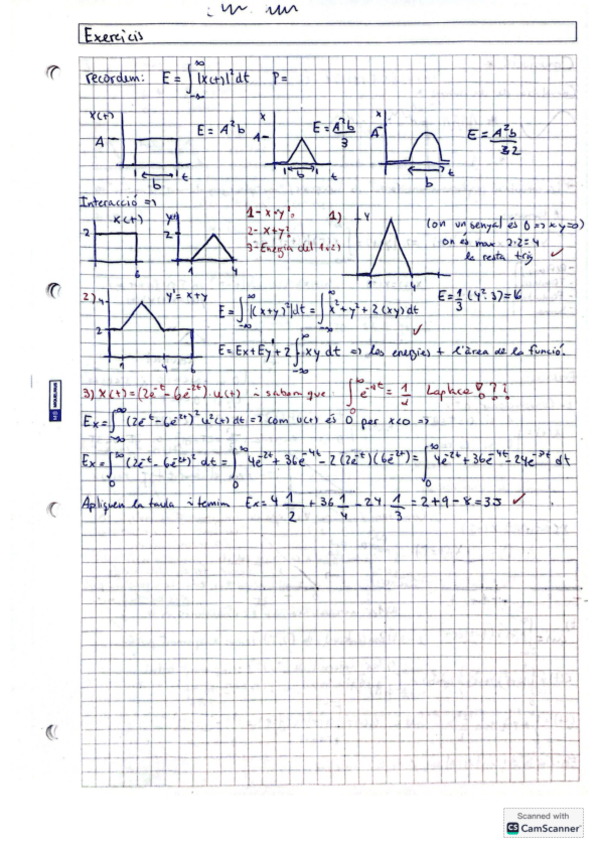 Exercicis
recordem: E = ∫_{-∞}^{∞} |x(t)|² dt   P =
x(t)   A   b   t   E = A²b
x   A   b   t   E = A²b/3
x   A   b   E = A²b/32
Interacció =>
x(t)   2   6
y(t)   2   1   4
1- x·y?
2- x+y?
3- Energia del 1 i 2)
1)   4   1   4
(on un senyal és 0 => x·y=0)
on és max. 2·2=4
la resta trig ✓
E = 1/3 (4²·3) = 16
2)   4   2   1   4   6   y' = x+y
E = ∫_{-∞}^{∞} |(x+y)²| dt = ∫_{-∞}^{∞} x² + y² + 2(xy) dt ✓
E = Ex + Ey + 2 ∫_{-∞}^{∞} xy dt => les energies + l'àrea de la funció.
3) x(t) = (2e^{-t} - 6e^{-2t}) · u(t) i sabem que ∫_{0}^{∞} e^{-αt} = 1/α   Laplace
Ex = ∫_{-∞}^{∞} (2e^{-t} - 6e^{-2t})² u²(t) dt => com u(t) és 0 per x<0 =>
Ex = ∫_{0}^{∞} (2e^{-t} - 6e^{-2t})² dt = ∫_{0}^{∞} 4e^{-2t} + 36e^{-4t} - 2(2e^{-t})(6e^{-2t}) = ∫_{0}^{∞} 4e^{-2t} + 36e^{-4t} - 24e^{-3t} dt
Apliquem la taula i tenim Ex = 4 1/2 + 36 1/4 - 24 · 1/3 = 2+9-8=3J ✓
Scanned with
CS CamScanner